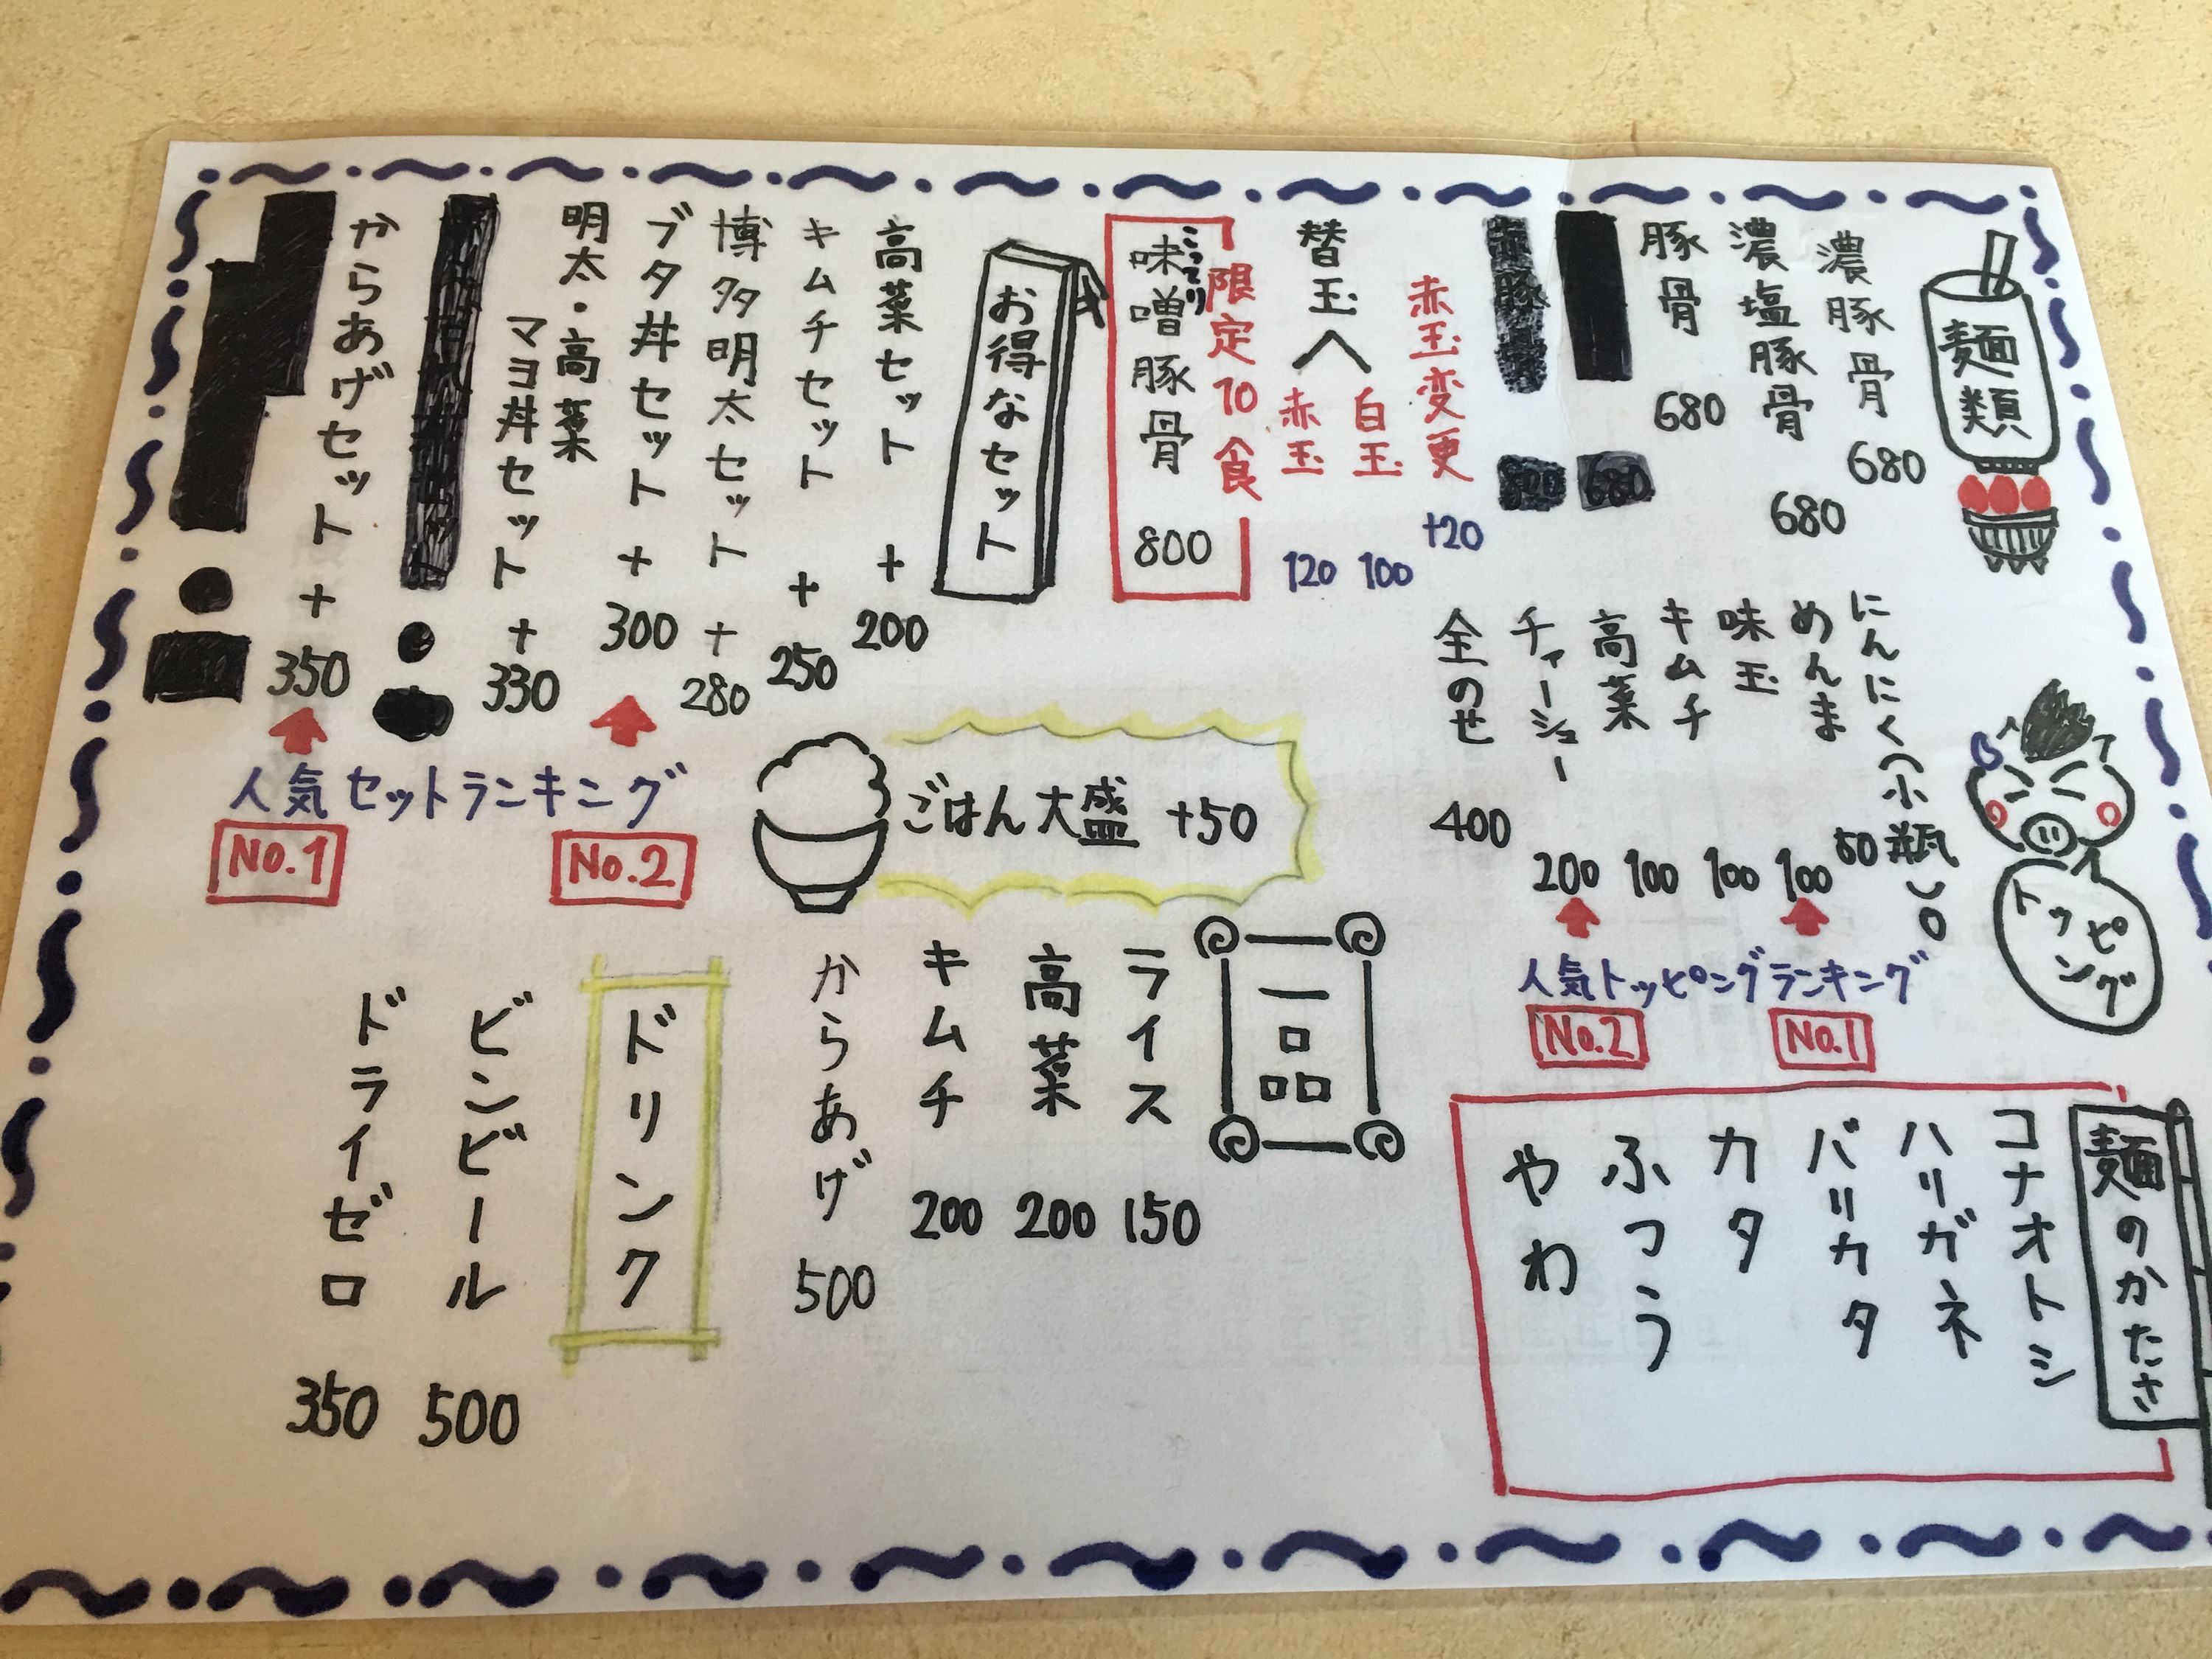 麺類
濃豚骨 680
濃塩豚骨 680
豚骨 680
赤玉変更 +20
替玉
白玉 100
赤玉 120
限定10食
こってり
味噌豚骨 800
お得なセット
高菜セット +200
キムチセット +250
博多明太セット +280
ブタ丼セット +300
明太・高菜
マヨ丼セット +330
からあげセット +350
人気セットランキング
No.2
No.1
トッピング
にんにく(小瓶) 0
めんま 50
味玉 100
キムチ 100
高菜 100
チャーシュー 200
全のせ 400
人気トッピングランキング
No.1
No.2
ごはん大盛 +50
麺のかたさ
コナオトシ
ハリガネ
バリカタ
カタ
ふつう
やわ
一品
ライス 150
高菜 200
キムチ 200
からあげ 500
ドリンク
ビンビール 500
ドライゼロ 350